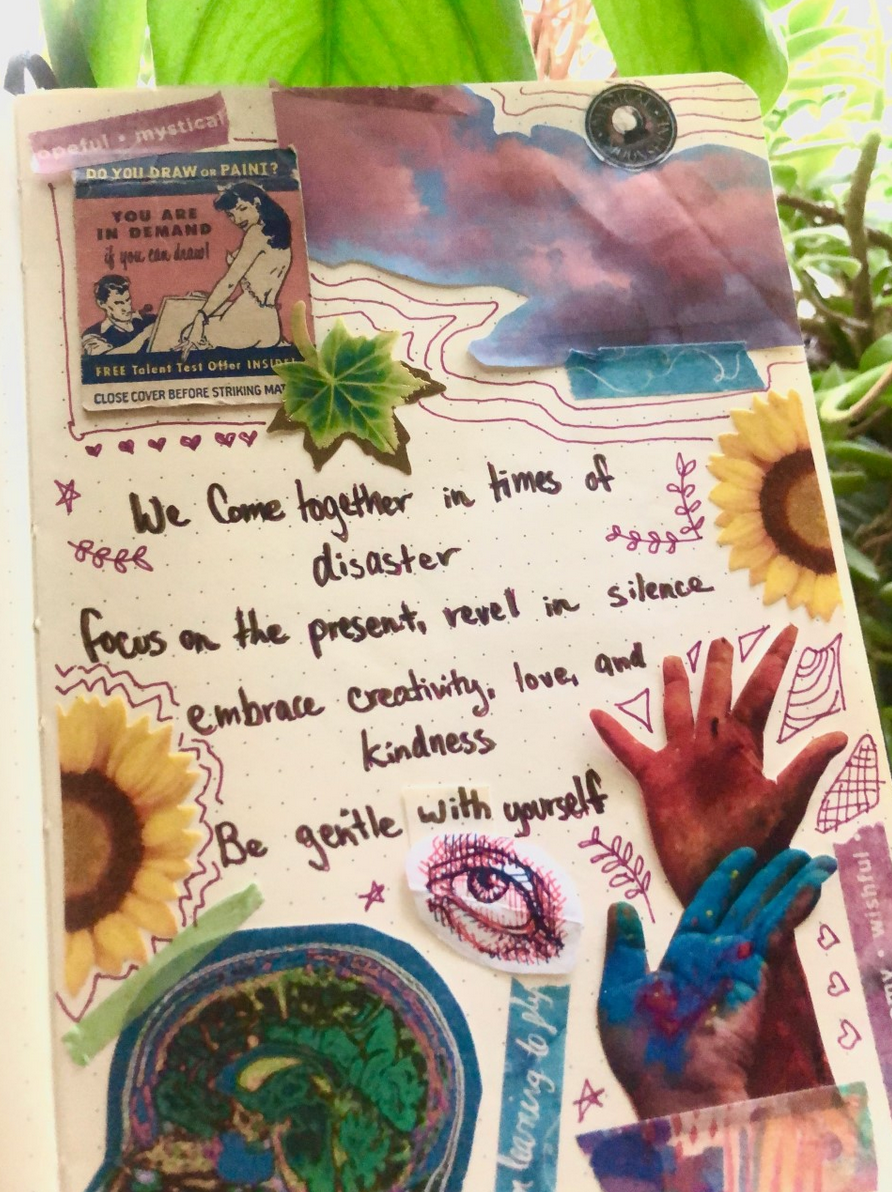 opeful • mystical
DO YOU DRAW OR PAINT?
YOU ARE
IN DEMAND
if you can draw!
FREE Talent Test Offer INSIDE!
CLOSE COVER BEFORE STRIKING MAT
We Come together in times of
disaster
focus on the present, revel in silence
embrace creativity, love, and
kindness
Be gentle with yourself
• wishful •
learning to fly